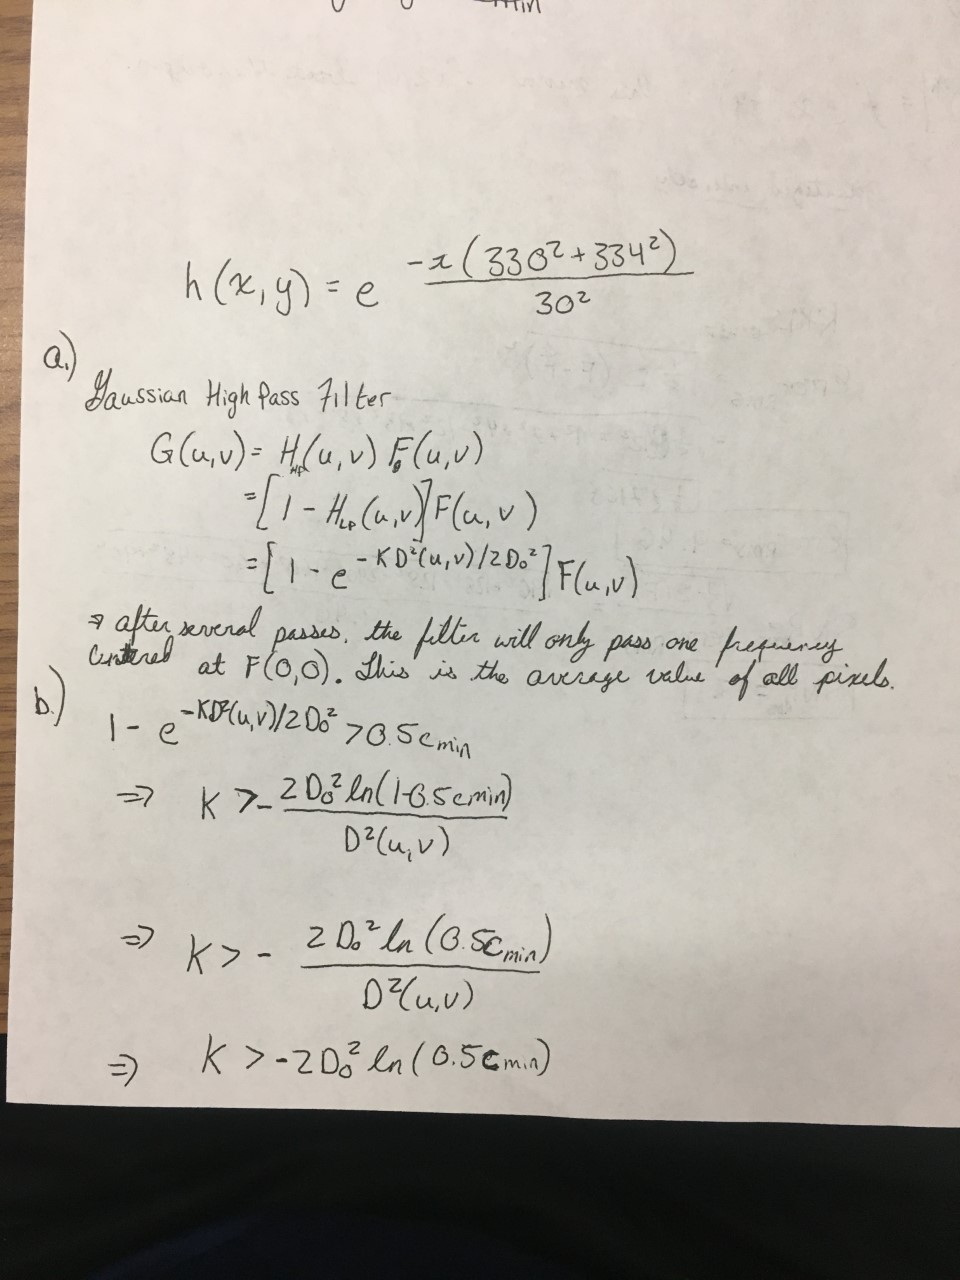 min
h(x,y) = e^(-x(330²+334²)/30²)
a.)
Gaussian High Pass Filter
G(u,v) = H_HP(u,v) F(u,v)
= [1 - H_LP(u,v)] F(u,v)
= [1 - e^(-KD²(u,v)/2D₀²)] F(u,v)
⇒ after several passes, the filter will only pass one frequency
centered at F(0,0). This is the average value of all pixels.
b.)
1 - e^(-KD²(u,v)/2D₀²) > 0.5c_min
⇒ K > - 2D₀² ln(1-0.5c_min) / D²(u,v)
⇒ K > - 2D₀² ln(0.5c_min) / D²(u,v)
⇒ K > -2D₀² ln(0.5c_min)